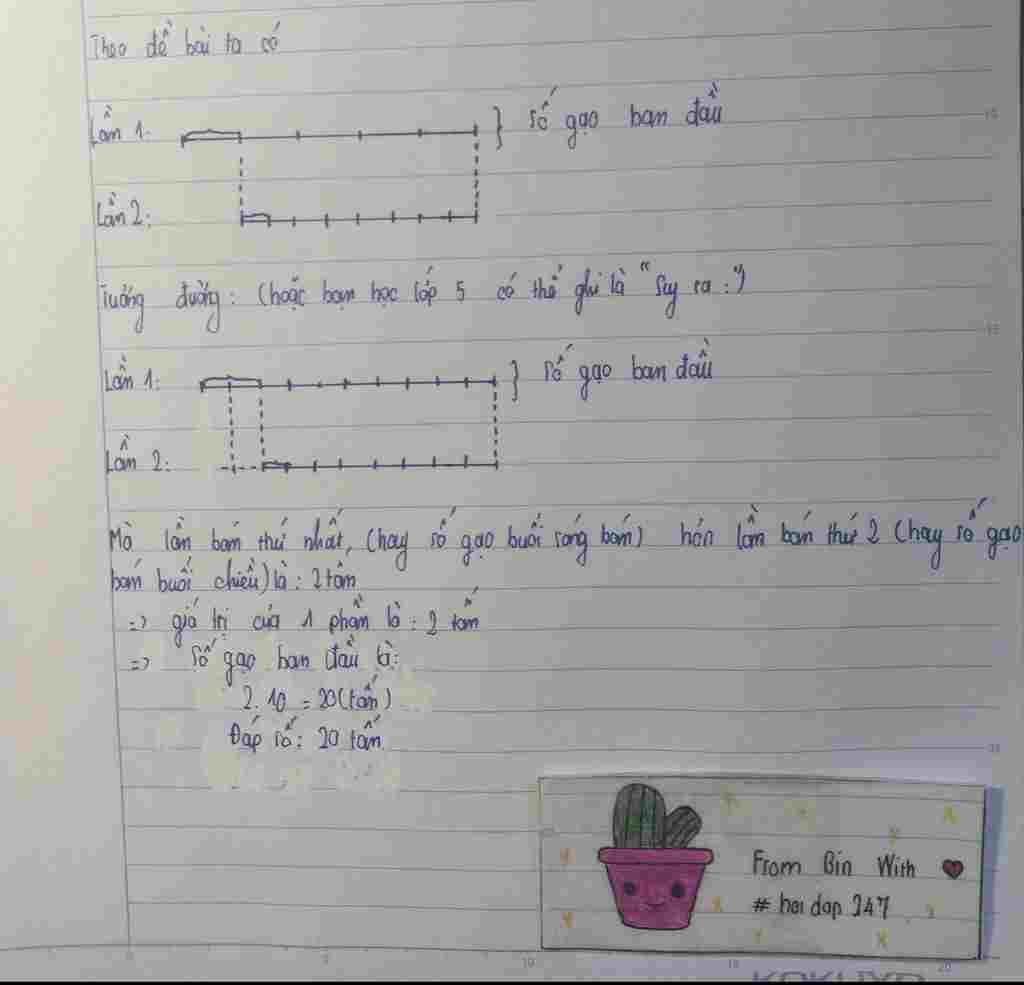 Theo đề bài ta có
Lần 1: } Số gạo ban đầu
Lần 2:
Tương đương: (hoặc bạn học lớp 5 có thể ghi là "Suy ra:")
Lần 1: } Số gạo ban đầu
Lần 2:
Mà lần bán thứ nhất, (hay số gạo buổi sáng bán) hơn lần bán thứ 2 (hay số gạo
bán buổi chiều) là: 2 tấn
=> giá trị của 1 phần là: 2 tấn
=> Số gạo ban đầu là:
2. 10 = 20 (tấn)
Đáp số: 20 tấn
From Bin With ♥
# hoi dap 247
10
15
20